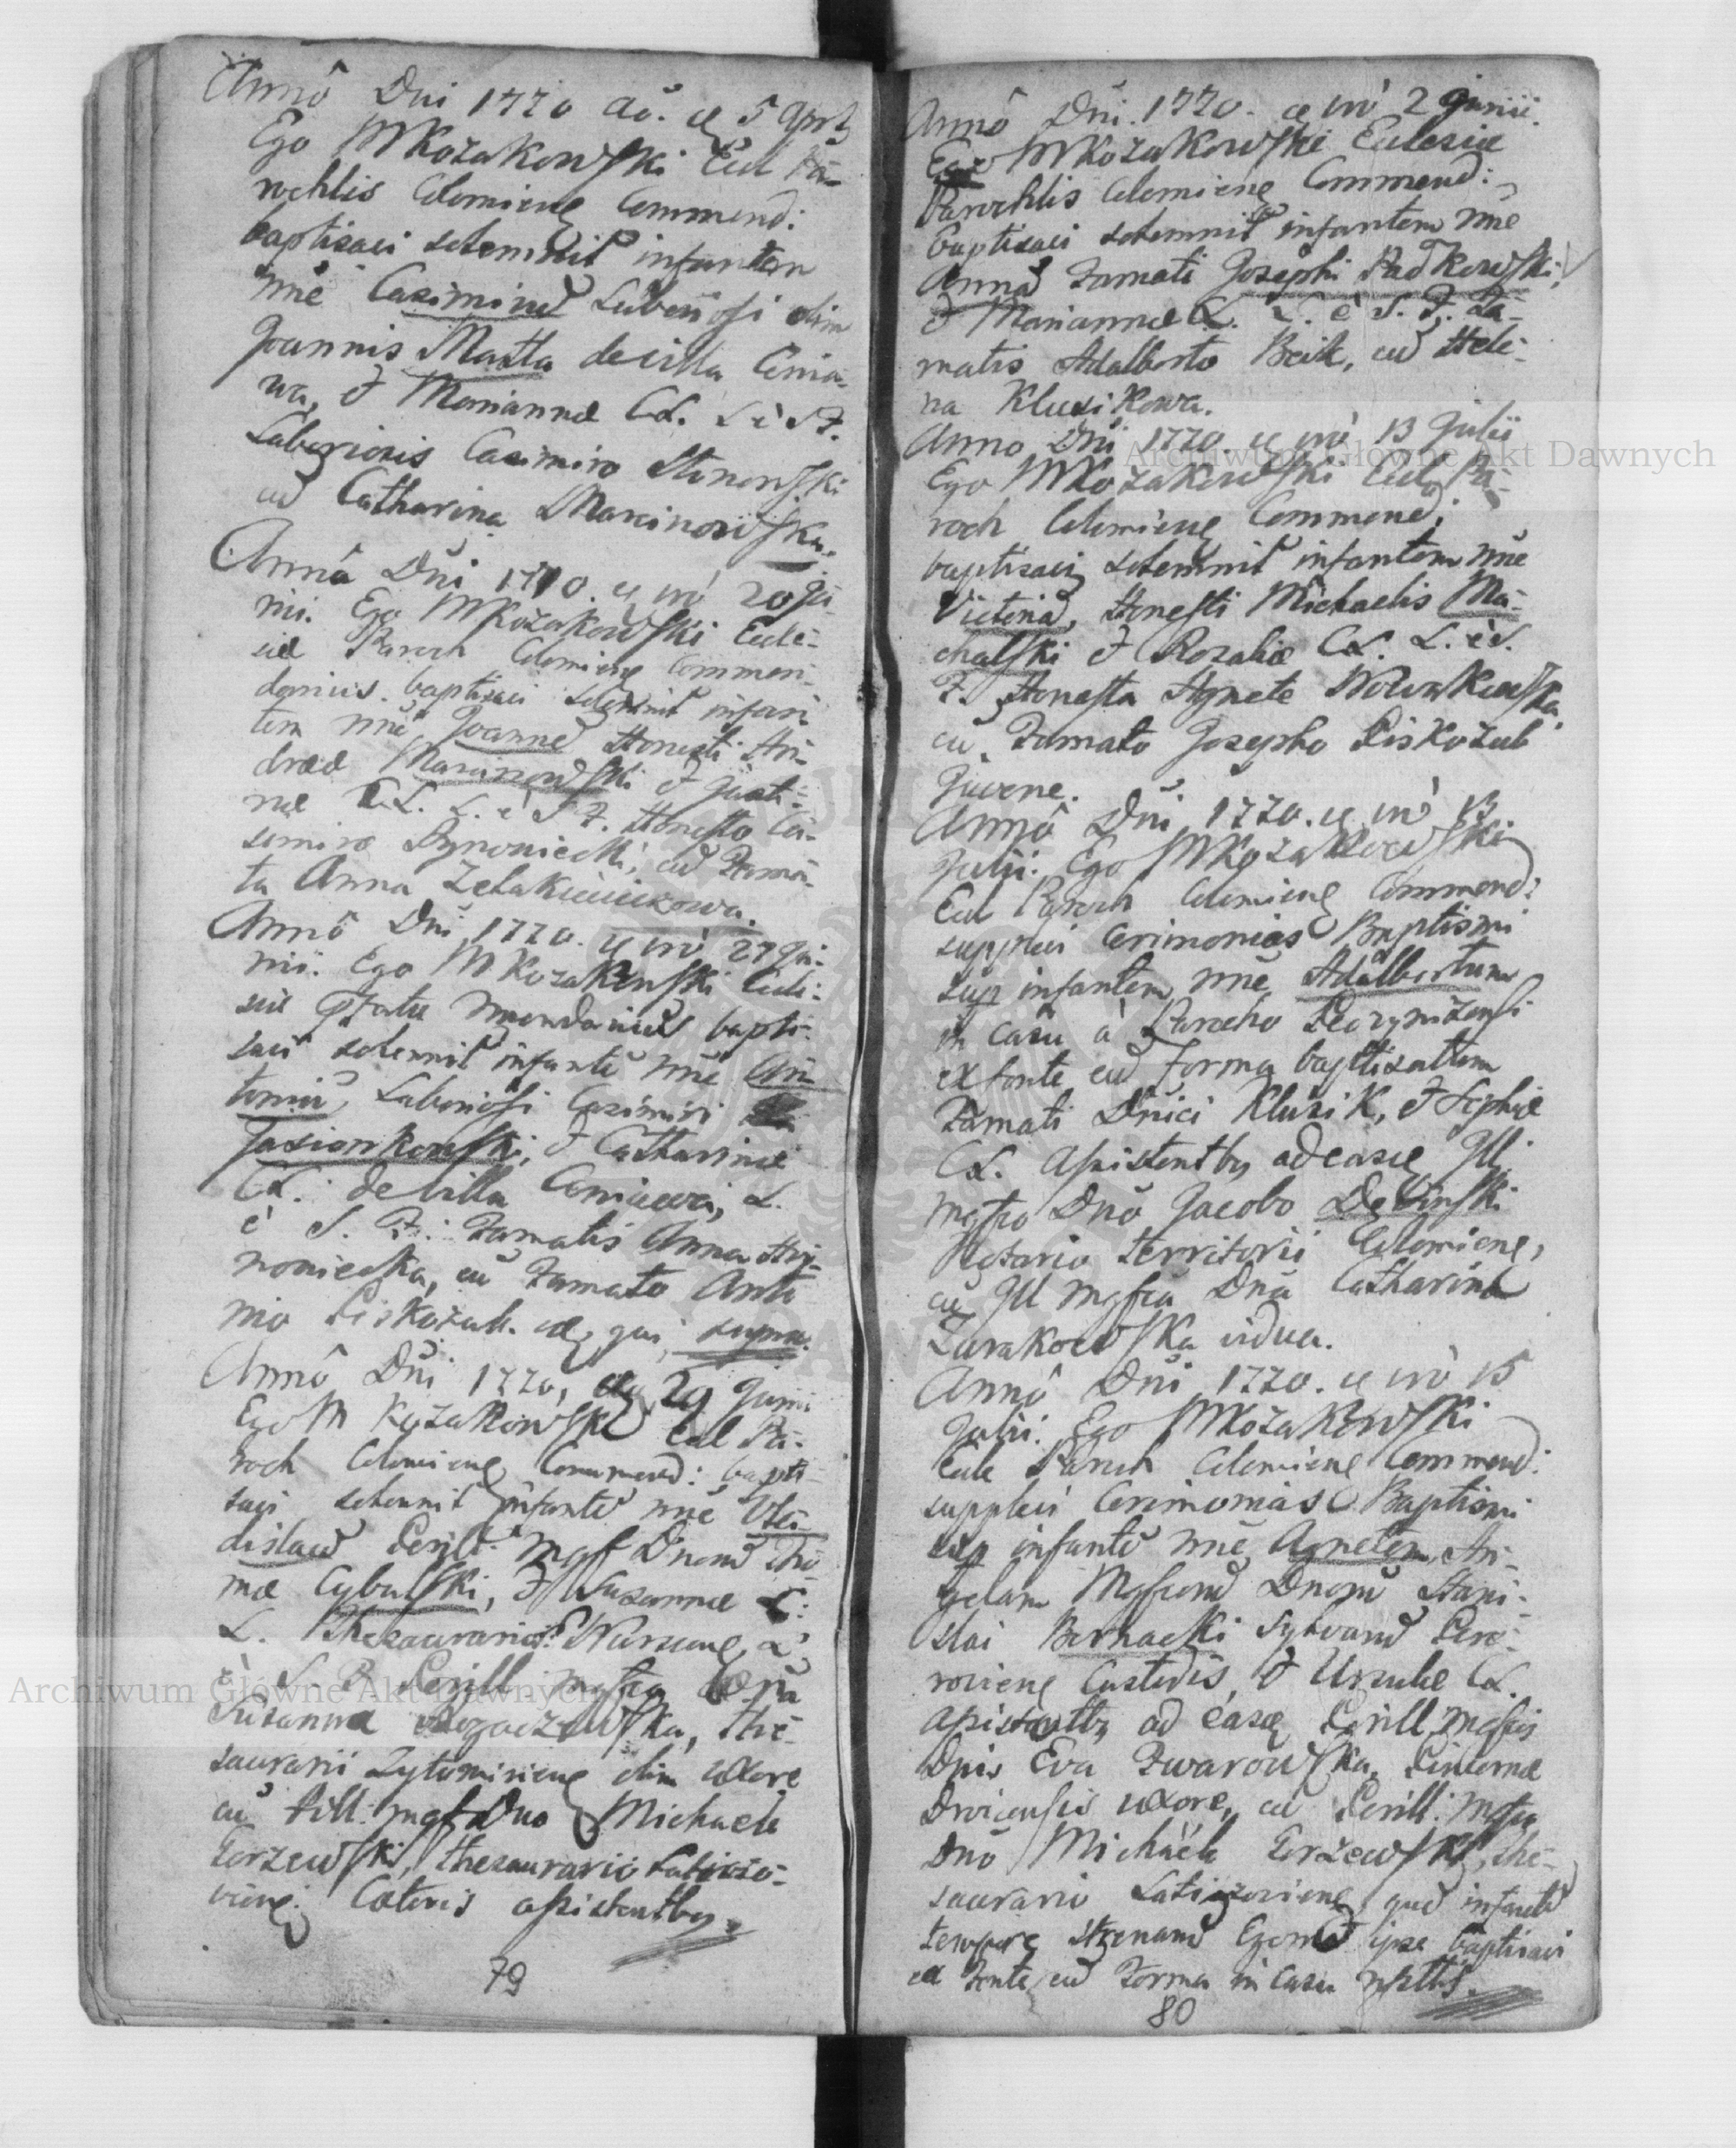 Annô Dni 1770 ao. ę 5 Aprl
Ego MKozakowski Eccl Pa-
rochlis Colomiens Commend:
baptisavi solemnit infantem
nne Casimirū Laboriosi olim
Joannis Masta de villa Cenia-
wa, & Mariannæ CL. L è S F.
Laboriosis Casimiro Stanowski
cū Catharina Marcinowska.
Annô Dni 1770. ę vrò 20 Ju
nii. Ego MKozakowski Eccle-
siæ Paroch Colomiens Commen-
darius baptisavi solemnit infan
tem nne Joannē Honesti An-
dreæ Marcinowski & Justi-
næ CL. L. è S F. Honesto Ca-
semiro Rynoniecki, cū Fama-
ta Anna
Annô Dni 1770. ę vrò 27 Ju-
nii. Ego MKozakowski Eccle-
siæ bapti-
savi solemnit infantē nne An
toniū, Laboriosi Casimiri
Jasionkowski, & Catharinæ
CL. de villa Ceniawa, L.
è S. F. Famatis Anna Hry-
noniecka, cū Famato Anto
nio Piskozub. ut supra.
Annô Dni 1770, 29 Junii
Ego M Kozakowski Eccl Pa-
roch Colomiens Commend: bapti-
savi solemnit infantē nne Vla-
dislaū Perill: Mgf Dnorū Tho
mæ Cybulski, & Susannæ C:
L. Thesaurario L.
è S. F. Perill mgfca Dna
Susanna The-
saurarii Zytomiriens olim uxore
cū Pill: mgf Dno Michaele
Gorzewski, Thesaurario Laticzo-
viens. Cæteris assistentbs.
79
Annô Dni. 1770. ę vrò 2 Junii.
Ego MKozakowski Eclesiæ
Parochlis Colomiens Commend:
baptisavi solemnit infantem nne
Annā Famati Josephi Radkowski,
& Mariannæ C. L. L. è S. F. Fa-
matis Adalberto Beik, cū Hele-
na Klusikowa.
Anno Dni 1770. ę vrò 13 Julii
Ego MKozakowski Eccl Pa-
roch Colomiens Commend:
baptisavi solemnit infantem nne
Victoriā, Honesti Michaelis Ma-
chalski & Rosaliæ CL. L. è S.
F. Honesta Agnete
cū Famato Josepho Piskozub
Juvene.
Annô Dni 1770. ę vrò 13
Julii. Ego MKozakowski
Eccl Paroch Colomiens Commend:
supplevi Cerimonias Baptismi
sup infantem nne Adalbertum
in casu à Parocho Peczynizensi
ex fonte cū forma baptisattum
Famati Dnici Klusik, & Sophiæ
CL. Assistentbs ad easę Ill.
mgfco Dno Jacobo Dębinski
Notario territorii Colomiens,
cū Ill mgfca Dna Catharina
Zurakowska vidua.
Annô Dni 1770. ę vrò 15
Julii. Ego MKozakowski
Eccle Paroch Colomiens Commend:
supplevi Cerimonias Baptismi
sup infantē nne Agnetem, An-
gelam Mgfcorū Dnorū Stani-
slai Bernacki Sylvarū
Custodis, & Ursulæ CL.
Assistentbs ad easę Perill mgfcis
Dnis Eva Pincernæ
uxore, cū Perill: Mgfco
Dno Michaele Gorzewski, The-
saurario Laticzoviens, quā infantē
tempore Egomet ipse baptisavi
ex Fonte cū Forma in casu
80
Archiwum Główne Akt Dawnych
Archiwum Główne Akt Dawnych